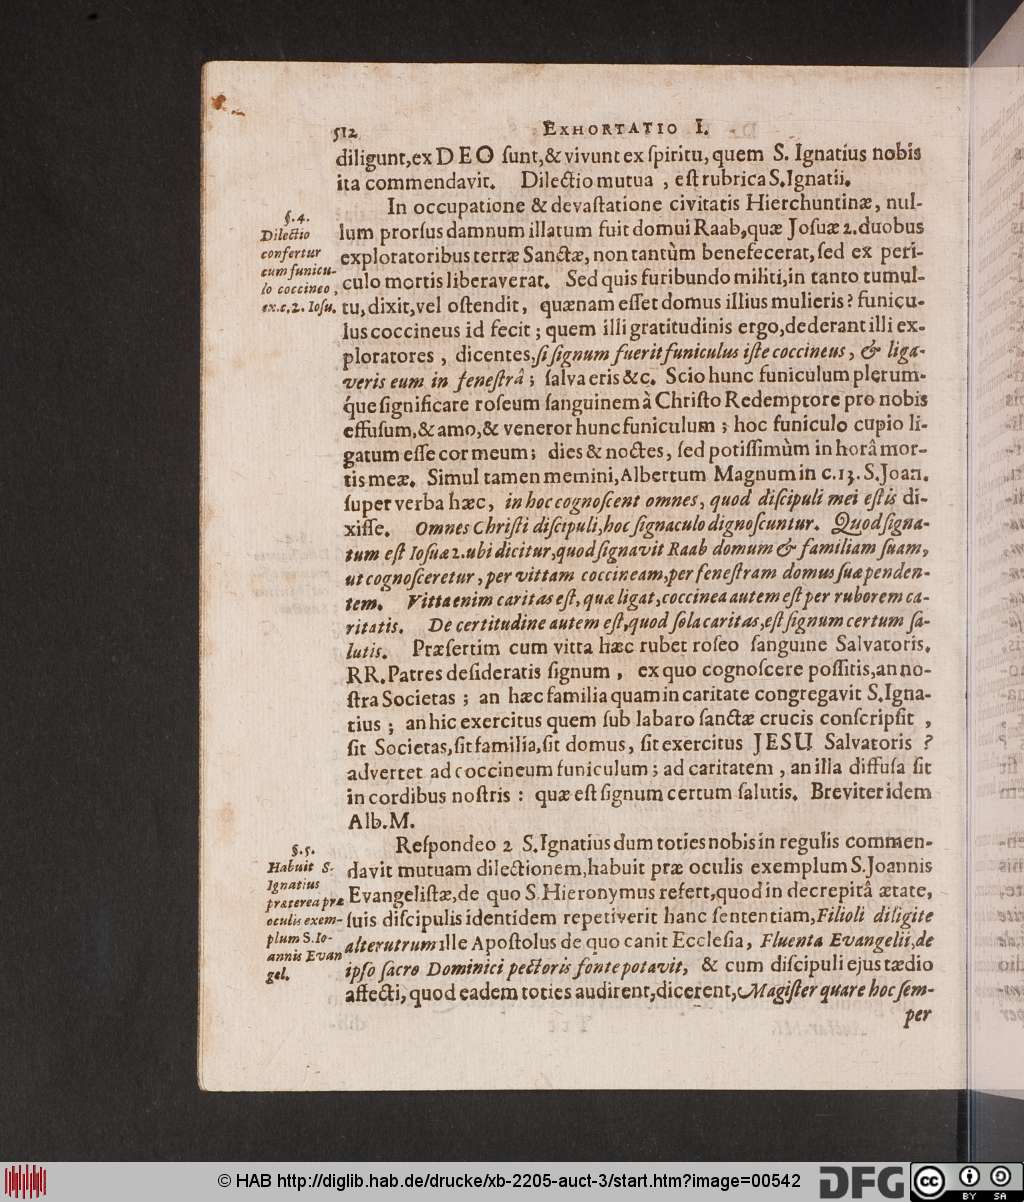 512 EXHORTATIO I.
diligunt,ex DEO ſunt,& vivunt ex ſpiritu, quem S. Ignatius nobis
ita commendavit. Dilectio mutua , eſt rubrica S.Ignatii.
§.4.
Dilectio
confertur
cum funicu-
lo coccineo,
ex.c.2. Ioſu.
In occupatione & devaſtatione civitatis Hierchuntinæ, nul-
lum prorſus damnum illatum fuit domui Raab,quæ Joſuæ 2. duobus
exploratoribus terræ Sanctæ, non tantùm benefecerat, ſed ex peri-
culo mortis liberaverat. Sed quis furibundo militi,in tanto tumul-
tu, dixit,vel oſtendit, quænam eſſet domus illius mulieris? funicu-
lus coccineus id fecit; quem illi gratitudinis ergo,dederant illi ex-
ploratores , dicentes,ſi ſignum fuerit funiculus iſte coccineus, & liga-
veris eum in feneſtrâ; ſalva eris &c. Scio hunc funiculum plerum-
que ſignificare roſeum ſanguinem à Chriſto Redemptore pro nobis
effuſum,& amo,& veneror hunc funiculum ; hoc funiculo cupio li-
gatum eſſe cor meum; dies & noctes, ſed potiſſimùm in horâ mor-
tis meæ. Simul tamen memini, Albertum Magnum in c.13. S.Joan.
ſuper verba hæc, in hoc cognoſcent omnes, quod diſcipuli mei eſtis di-
xiſſe. Omnes Chriſti diſcipuli,hoc ſignaculo dignoſcuntur. Quod ſigna-
tum eſt Ioſuæ 2. ubi dicitur,quod ſignavit Raab domum & familiam ſuam,
ut cognoſceretur, per vittam coccineam,per feneſtram domus ſuæ penden-
tem. Vitta enim caritas eſt, quæ ligat,coccinea autem eſt per ruborem ca-
ritatis. De certitudine autem eſt,quod ſola caritas,eſt ſignum certum ſa-
lutis. Præſertim cum vitta hæc rubet roſeo ſanguine Salvatoris.
RR.Patres deſideratis ſignum , ex quo cognoſcere poſſitis,an no-
ſtra Societas ; an hæc familia quam in caritate congregavit S.Igna-
tius ; an hic exercitus quem ſub labaro ſanctæ crucis conſcripſit ,
ſit Societas,ſit familia,ſit domus, ſit exercitus JESU Salvatoris ?
advertet ad coccineum funiculum; ad caritatem , an illa diffuſa ſit
in cordibus noſtris : quæ eſt ſignum certum ſalutis. Breviter idem
Alb.M.
§.5.
Habuit S.
Ignatius
præterea præ
oculis exem-
plum S.Io-
annis Evan
gel.
Reſpondeo 2 S.Ignatius dum toties nobis in regulis commen-
davit mutuam dilectionem,habuit præ oculis exemplum S.Joannis
Evangeliſtæ,de quo S.Hieronymus refert,quod in decrepitâ ætate,
ſuis diſcipulis identidem repetiverit hanc ſententiam,Filioli diligite
alterutrum ille Apoſtolus de quo canit Eccleſia, Fluenta Evangelii,de
ipſo ſacro Dominici pectoris fonte potavit, & cum diſcipuli ejus tædio
affecti, quod eadem toties audirent,dicerent,Magiſter quare hoc ſem-
per
© HAB http://diglib.hab.de/drucke/xb-2205-auct-3/start.htm?image=00542
DFG
cc BY SA